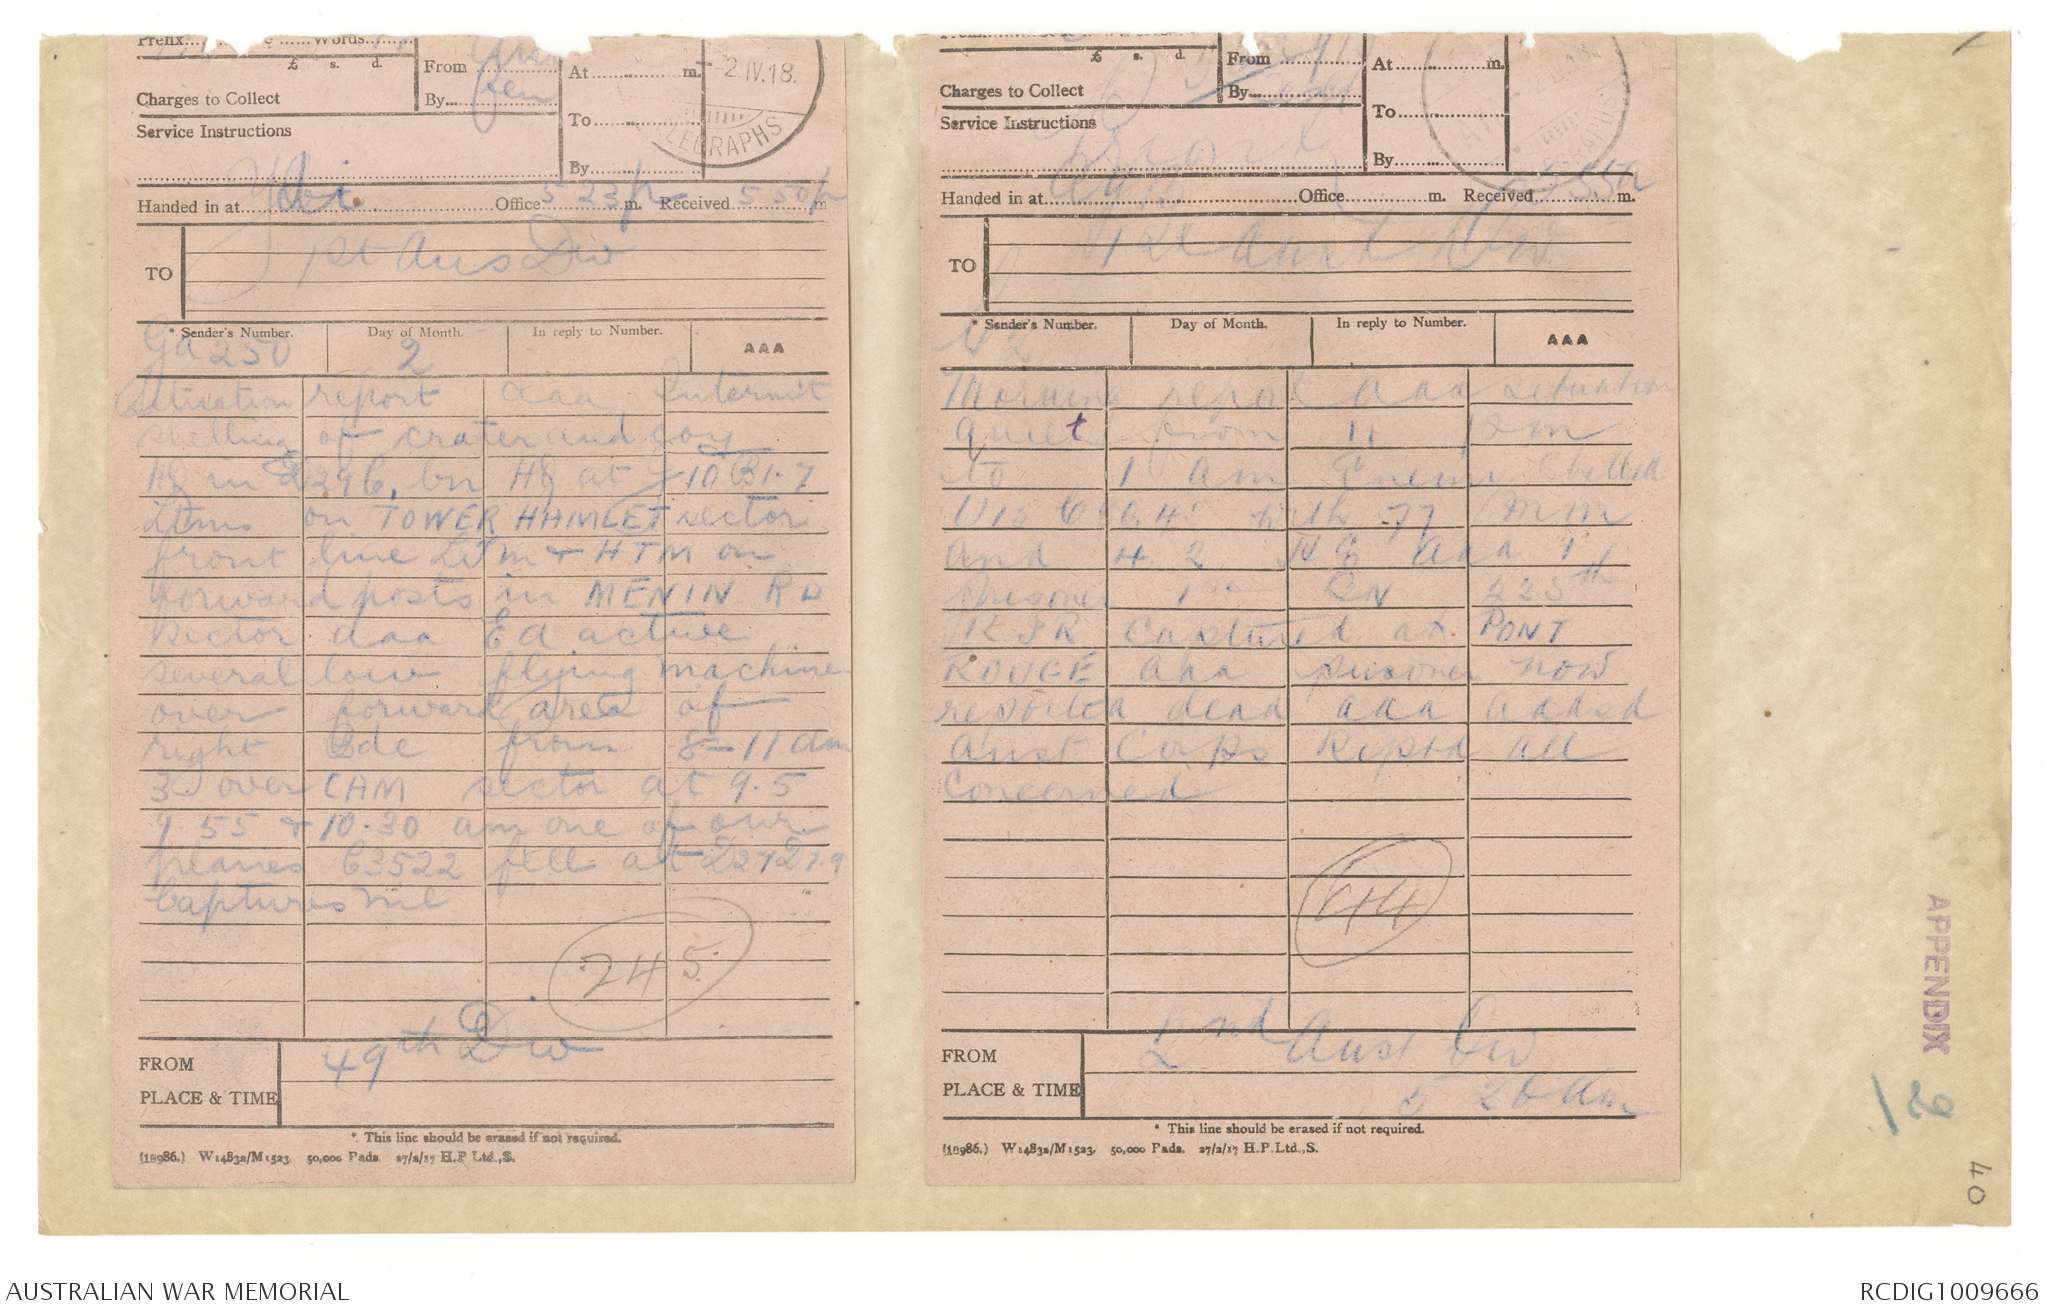 Prefix............Words............
£ s. d.
From
By...
At.....................m.
-2.IV.18.
Charges to Collect
To
TELEGRAPHS
Service Instructions
By
Handed in at Ydi Office 5 23 p m. Received 5 50 p m
TO 1st Aus Div
* Sender's Number. Day of Month. In reply to Number. AAA
Ga 250 2
Situation report aaa Intermit
shelling of crater and coy
HQ in bn HQ at J 10 B 1.7
Ltms on TOWER HAMLET sector
front line Ltm & HTM on
forward posts in MENIN RD
sector aaa Ea active
several low flying machines
over forward area of
right Bde from 8-11 am
3 over CAM sector at 9.5
9.55 & 10.30 am one of our
planes C3522 fell at
Captures nil
245
FROM 49th Div
PLACE & TIME
*. This line should be erased if not required.
(18986.) W1483a/M1523. 50,000 Pads. 27/2/17 H.P Ltd.,S.
£ s. d.
From
By
At.....................m.
Charges to Collect
To
Service Instructions
By
Handed in at Office m. Received m.
TO 1st Aust Div
* Sender's Number. Day of Month. In reply to Number. AAA
Morning report aaa situation
quiet from 11 pm
to 1 am Enemy shelled
with 77 mm
and 4.2 HE aaa
Prisoner 1st BN
KIR captured at PONT
ROUGE aaa prisoner now
reported dead aaa added
Aust Corps Reptd all
Concerned
44
FROM 2nd Aust Div
PLACE & TIME 5 20 Am
* This line should be erased if not required.
(18986.) W1483a/M1523. 50,000 Pads. 27/2/17 H.P.Ltd.,S.
APPENDIX
40
AUSTRALIAN WAR MEMORIAL
RCDIG1009666